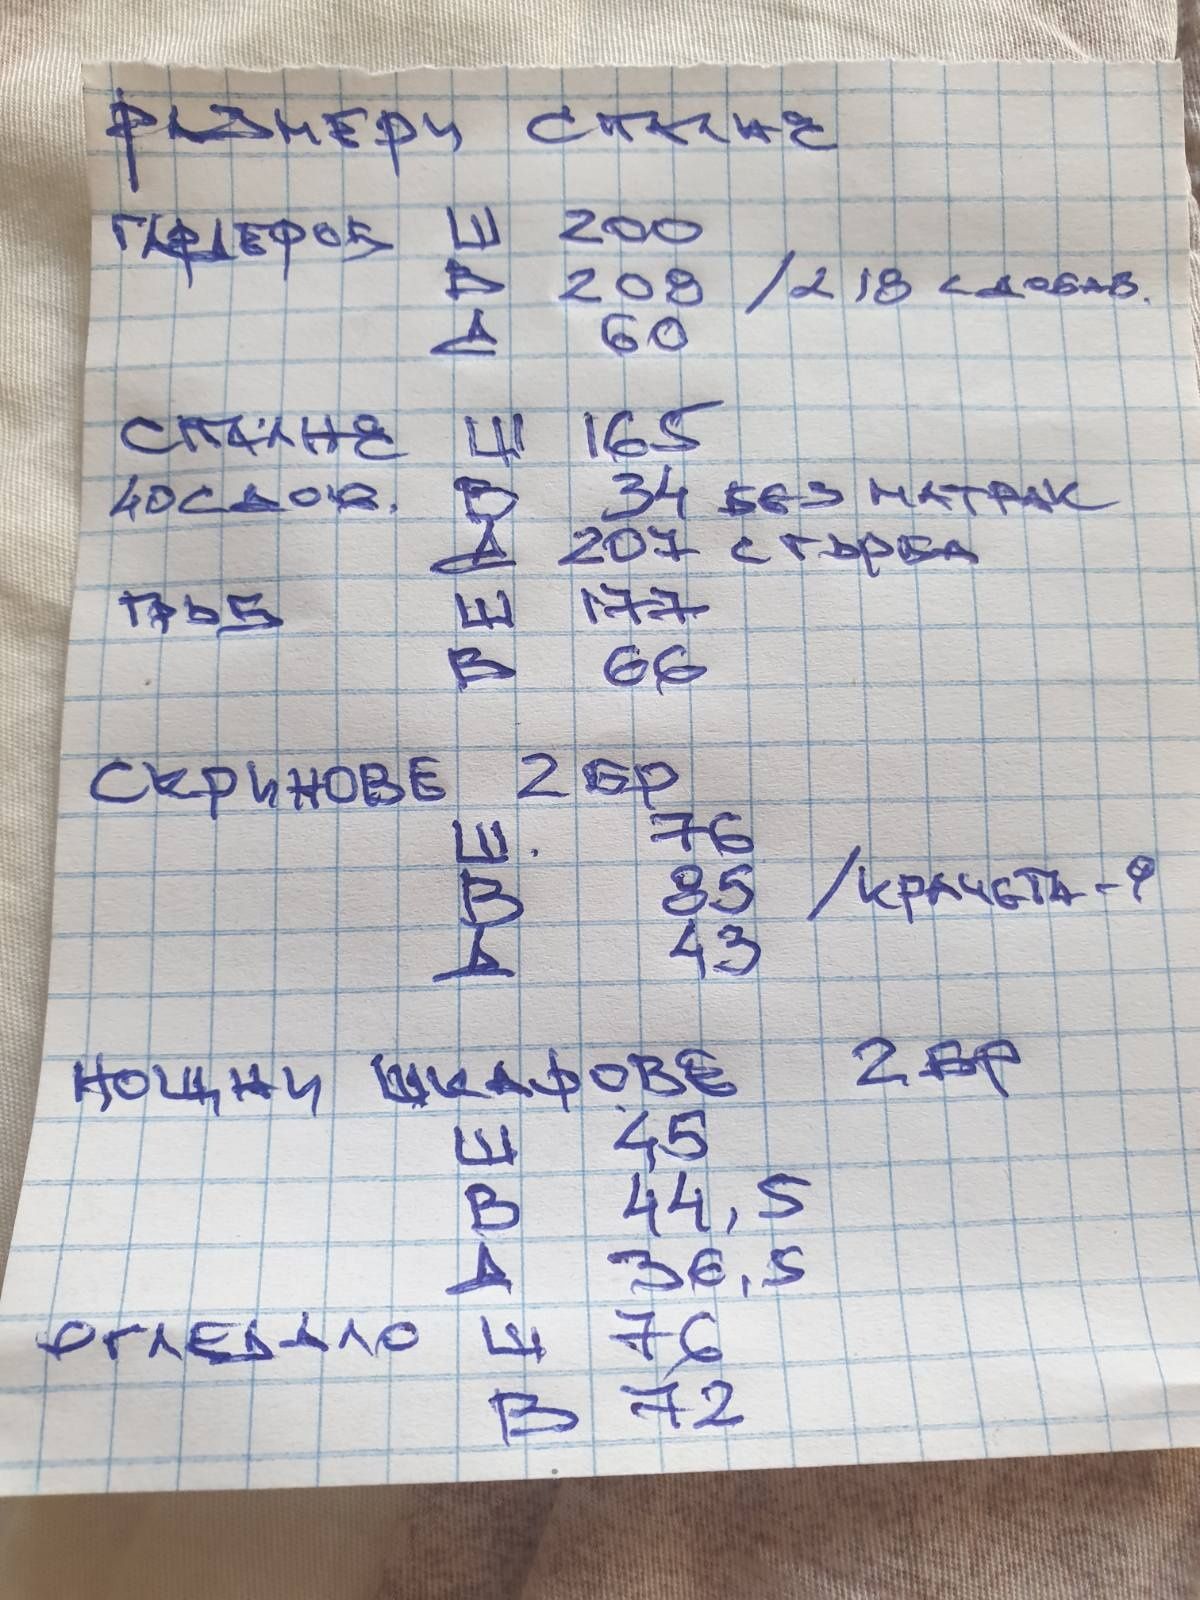 РАЗМЕРИ СПАЛНЯ
ГАРДЕРОБ Ш 200
В 208 /218 С ДОБАВ.
Д 60
СПАЛНЯ Ш 165
40 С ДОБ. В 34 БЕЗ МАТРАК
Д 207 С ГЪРБА
ГРЪБ Ш 177
В 66
СКРИНОВЕ 2 БР
Ш. 76
В 85 /КРАЧЕТА-?
Д 43
НОЩНИ ШКАФОВЕ 2 БР
Ш 45
В 44,5
Д 36,5
ОГЛЕДАЛО Ш 76
В 72